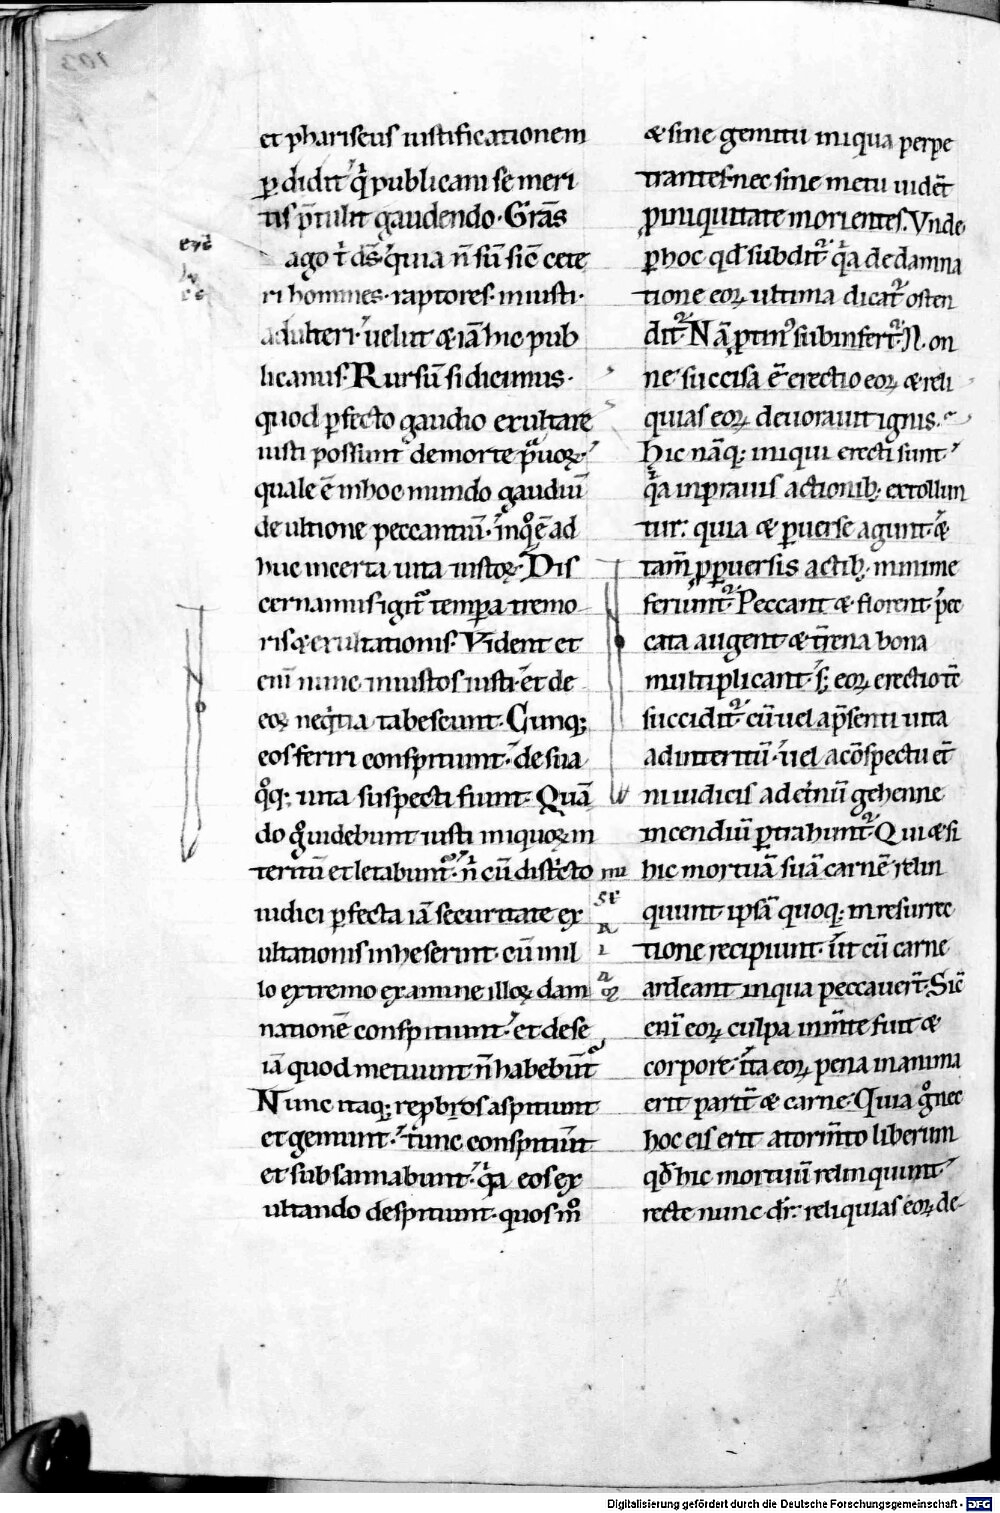 103
et phariseus iustificationem
ꝑdidit qͥ publicani se meri
tis p̄tulit gaudendo. Gr̄as
ago t̄ ds̄. quia n̄ sū sic̄ cete
ri homines. raptores. iniusti.
adulteri. uelut & iā hic pub
licanus. Rursū si dicimus.
quod ꝑfecto gaudio exultare
iusti possunt de morte prͣuoꝝ.
quale ē in hoc mundo gaudiū
de ultione peccantiū. in qͦ ē ad
huc incerta uita iustoꝝ. Dis
cernamus igit᷑ tempora tremo
ris & exultationis. Vident et
enī nunc iniustos iusti. et de
eoꝝ neqͥtia tabescunt. Cunq;
eos feriri conspitiunt. de sua
qͦq; uita suspecti fiunt. Quā
do gͦ uidebunt iusti iniquoꝝ in
teritū et letabunt᷑. n̄ cū districto
iudici ꝑfecta iā securitate ex
ultationis inheserint. cū in il
lo extremo examine illoꝝ dam
nationē conspitiunt. et de se
iā quod metuunt n̄ habebūt
Nunc itaq; reprobos aspitiunt
et gemunt. tunc conspitiūt
et subsannabunt. qͥa eos ex
ultando despitiunt. quos mͦ
& sine gemitu iniqua perpe
trantes. nec sine metu uidēt
ꝓ iniquitate morientes. Vnde
ꝑ hoc qd̄ subdit᷑. qͥa de damna
tione eoꝝ ultima dicat᷑ osten
dit᷑. Nā ꝓtinꝰ subinfert᷑. Non
ne succisa ē erectio eoꝝ & reli
quias eoꝝ deuorauit ignis.
Hic nāq; iniqui erecti sunt.
qͥa in prauis actionib; extollun
tur. quia & ꝑuerse agunt. &
tam̄ ꝓ ꝑuersis actib; minime
feriunt᷑. Peccant & florent. pec
cata augent & t̄rena bona
multiplicant. s; eoꝝ erectio tc̄
succidit᷑. cū uel a p̄senti uita
ad interitū. uel a cōspectu et̄
ni iudicis ad et̄nū gehenne
incendiū ꝑtrahunt᷑. Qui & si
hic mortuā suā carnē relin
quunt ipsā quoq; in resurrec
tione recipiunt. ut cū carne
ardeant in qua peccauer̄t. Sic̄
enī eoꝝ culpa in m̄te fuit &
corpore. ita eoꝝ pena in anima
erit parit᷑ & carne. Quia gͦ nec
hoc eis erit a torm̄to liberum
qd̄ hic mortuū relinquunt.
recte nunc dr̄. reliquias eoꝝ de
Digitalisierung gefördert durch die Deutsche Forschungsgemeinschaft - DFG